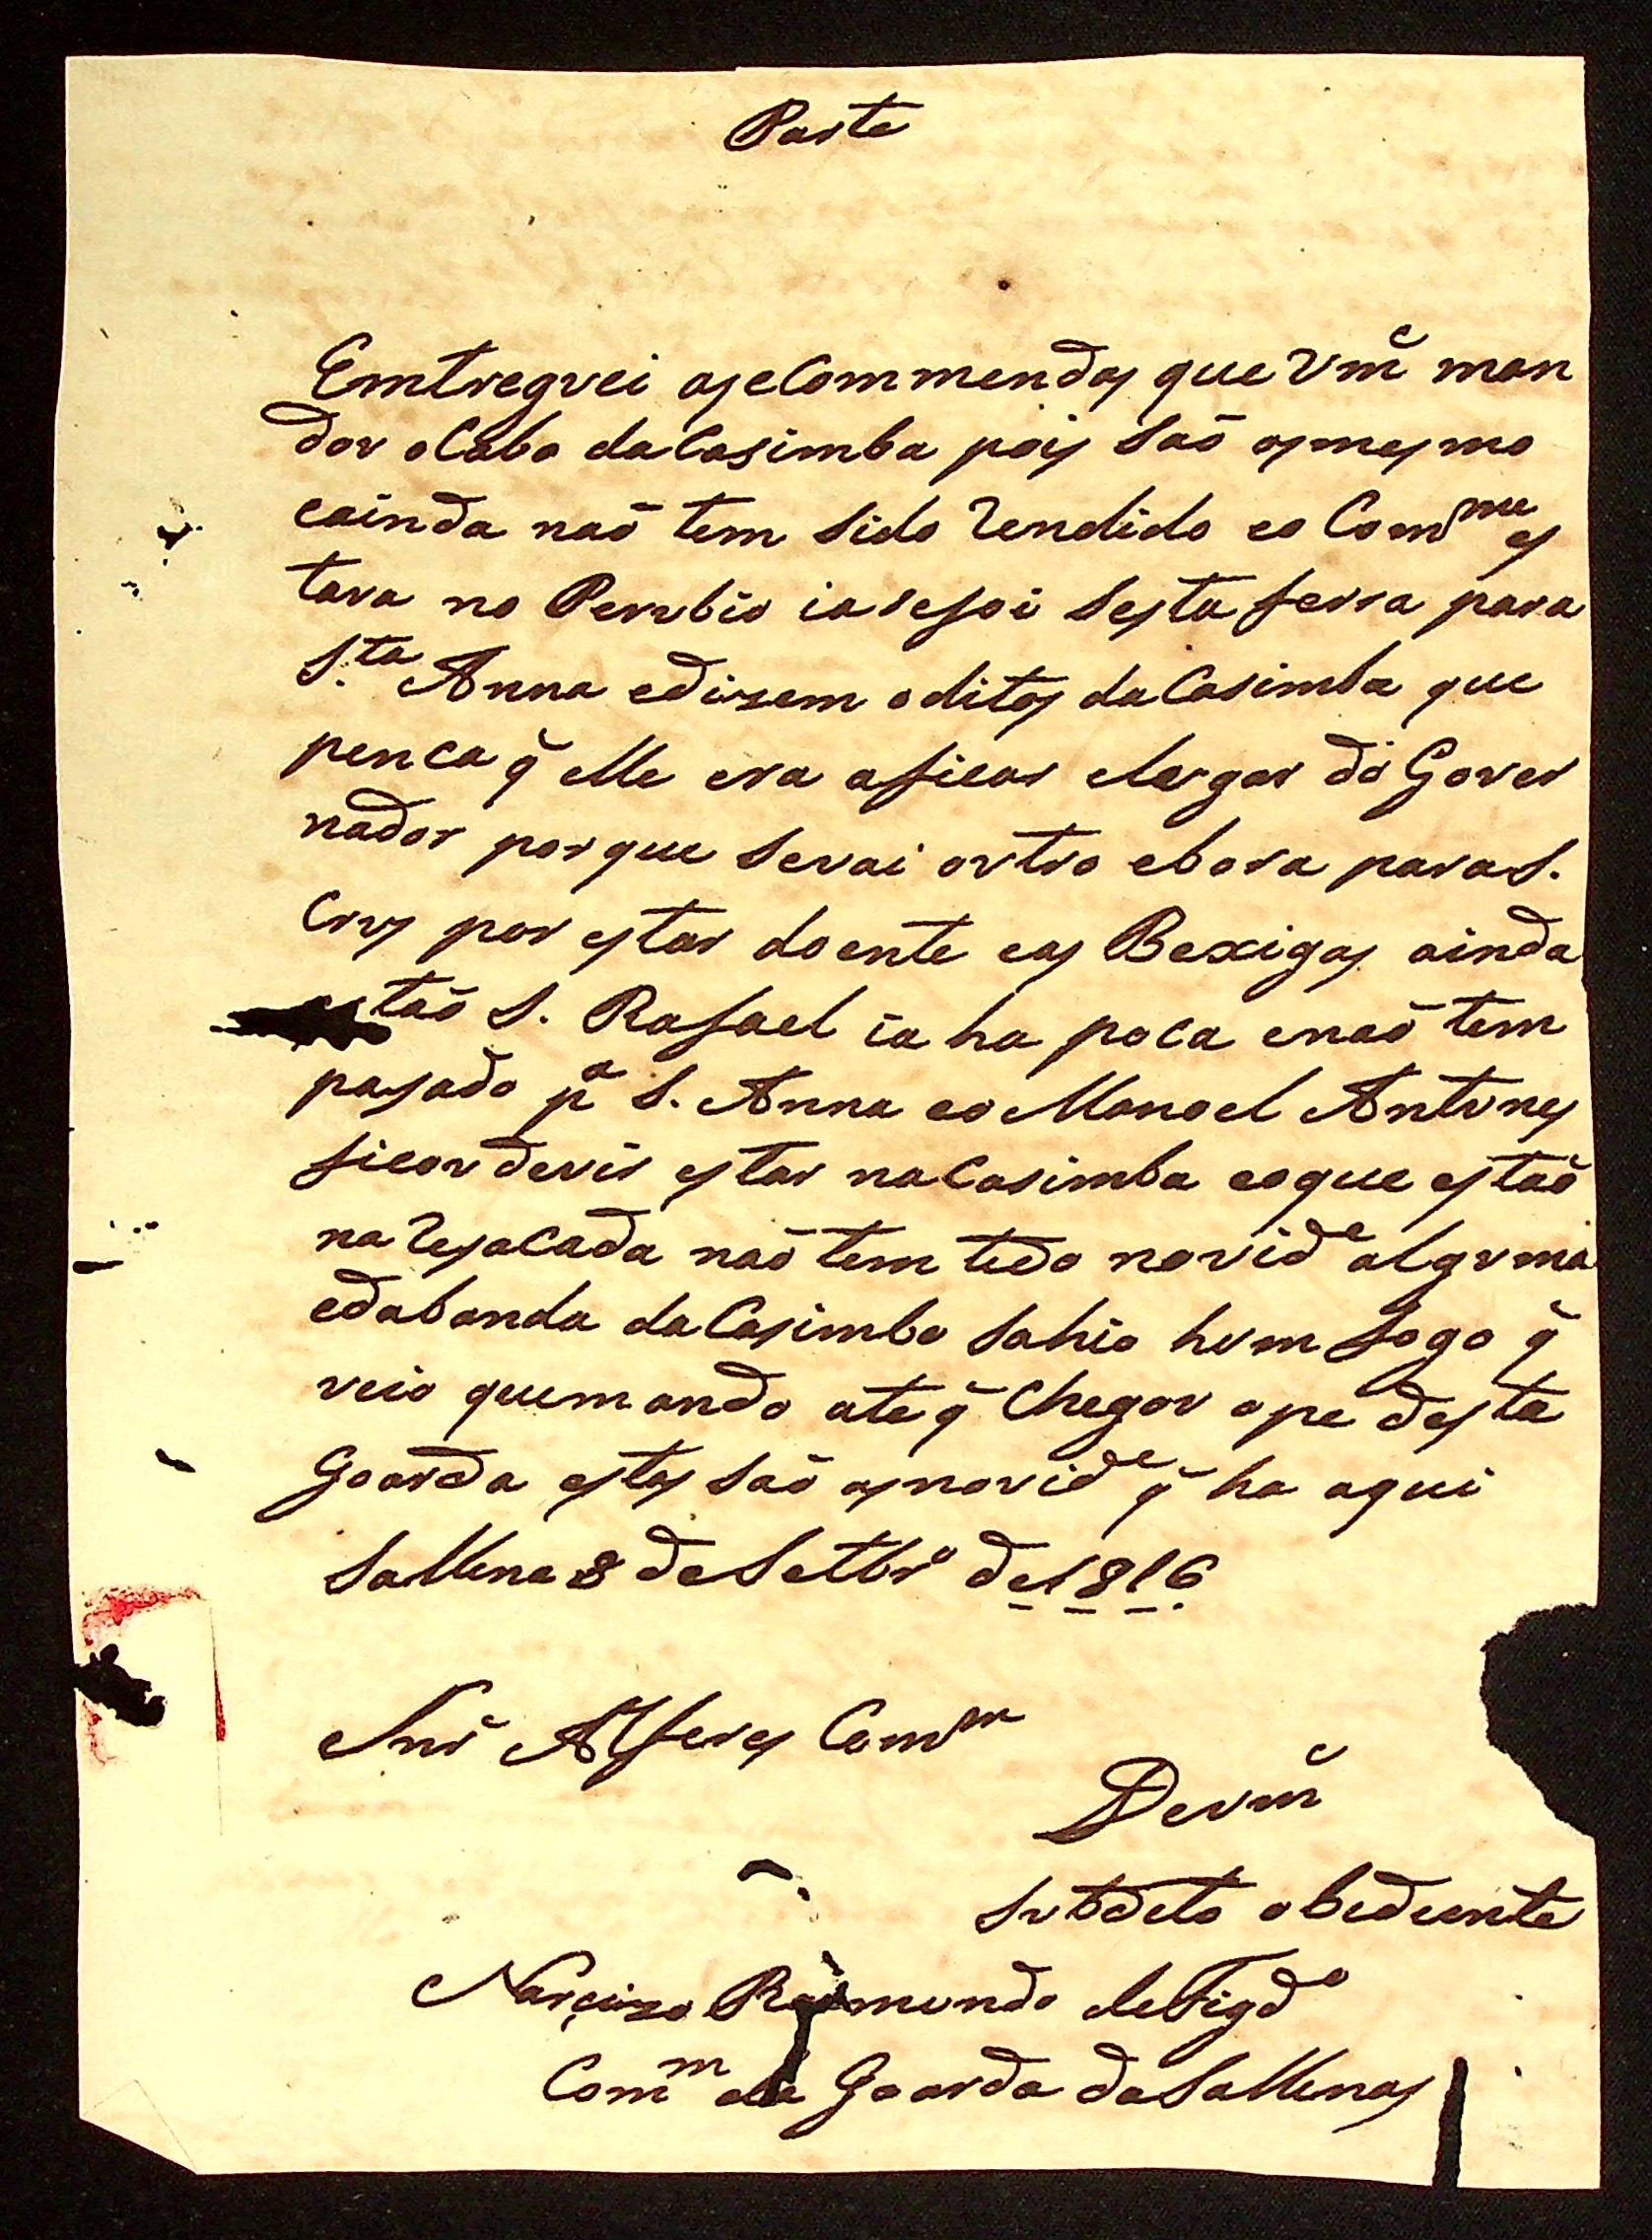 Parte
Emtregvei asecommendas que Vm.ce man
dov oCabo daCasimba pois Saõ osmesmo
eainda naõ tem Sido Rendido eo Comme es
tava no Perubio iasefoi Sesta ferra para
S.ta Anna edizem oditos daCasimba que
penca q̃ elle era aficar elargar do Gover
nador porque Sevai ovtro ebora paraS.
Crus por estar doente eas Bexigas ainda
estaõ S. Rafael ia ha poca enaõ tem
pasado p.a S. Anna eo Manoel Antvnes
ficov devir estar naCasimba eoque estaõ
na Resacada naõ tem tedo novid.e algvma
edabanda daCasimba Sahio hvm fogo q̃
veio quemando ate q̃ Chegov ope desta
Goarda estas Saõ asnovid.e q̃ ha aqui
Sallena 8 deSettbr.o de1816
Snr̃ Alferes Comm
Devm.ce
Svbdeto obediente
Narcizo Raimundo deFigd.o
Comm da Goarda daSallenas